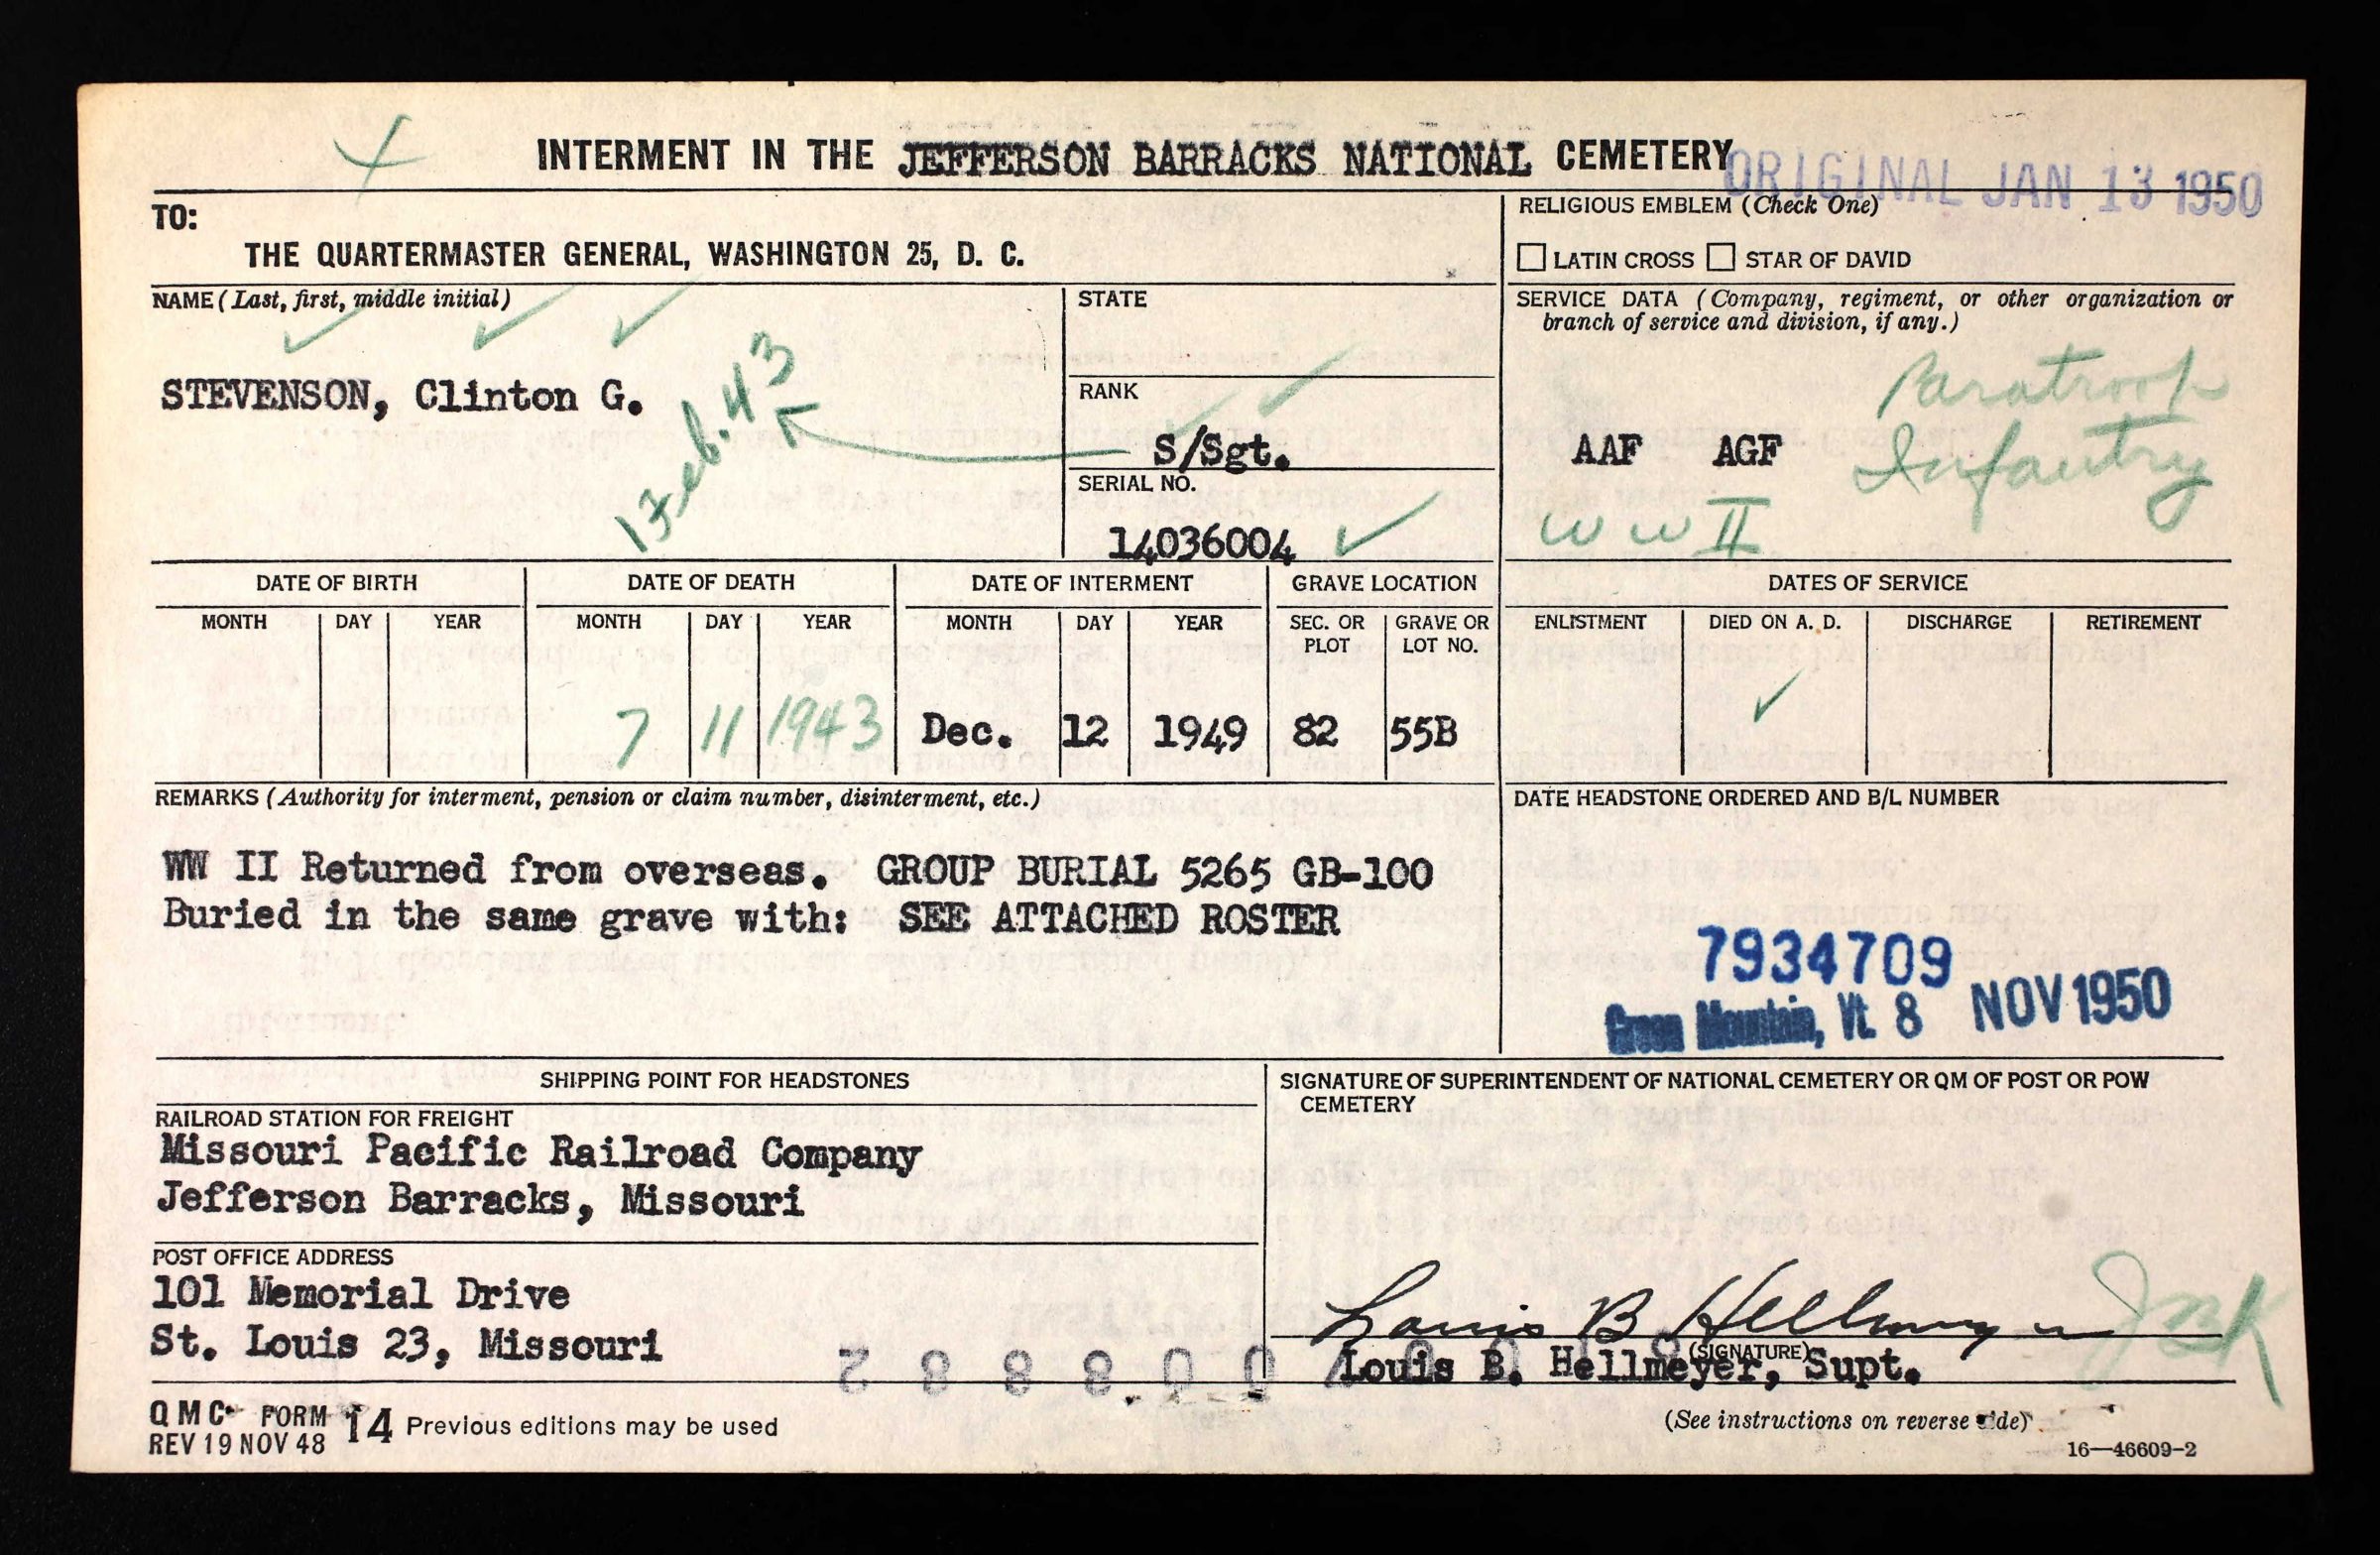 INTERMENT IN THE JEFFERSON BARRACKS NATIONAL CEMETERY
ORIGINAL JAN 13 1950
TO:
THE QUARTERMASTER GENERAL, WASHINGTON 25, D. C.
RELIGIOUS EMBLEM (Check One)
LATIN CROSS STAR OF DAVID
NAME (Last, first, middle initial)
STEVENSON, Clinton G.
1 Feb. 43
STATE
RANK
S/Sgt.
SERIAL NO.
14036004
SERVICE DATA (Company, regiment, or other organization or
branch of service and division, if any.)
Paratroop
AAF AGF Infantry
WW II
DATE OF BIRTH DATE OF DEATH DATE OF INTERMENT GRAVE LOCATION DATES OF SERVICE
MONTH DAY YEAR MONTH DAY YEAR MONTH DAY YEAR SEC. OR PLOT GRAVE OR LOT NO. ENLISTMENT DIED ON A. D. DISCHARGE RETIREMENT
7 11 1943 Dec. 12 1949 82 55B
REMARKS (Authority for interment, pension or claim number, disinterment, etc.)
WW II Returned from overseas. GROUP BURIAL 5265 GB-100
Buried in the same grave with: SEE ATTACHED ROSTER
DATE HEADSTONE ORDERED AND B/L NUMBER
7934709
Green Mountain, Vt. 8 NOV 1950
SHIPPING POINT FOR HEADSTONES
RAILROAD STATION FOR FREIGHT
Missouri Pacific Railroad Company
Jefferson Barracks, Missouri
POST OFFICE ADDRESS
101 Memorial Drive
St. Louis 23, Missouri
SIGNATURE OF SUPERINTENDENT OF NATIONAL CEMETERY OR QM OF POST OR POW
CEMETERY
Louis B Hellmeyer
(SIGNATURE)
Louis B. Hellmeyer, Supt.
QMC FORM 14 Previous editions may be used
REV 19 NOV 48
(See instructions on reverse side)
16—46609-2